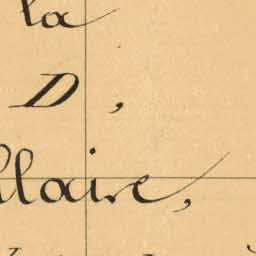 la
D,
llaire,